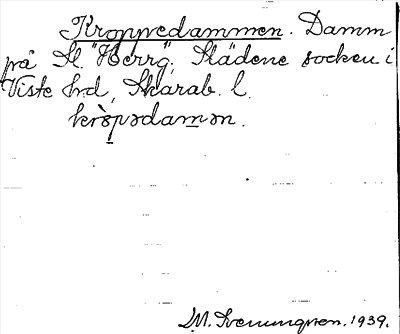 Kroppedammen. Damm
på St. "Herrg", Slädene socken i
Viste hd, Skarab. l.
kròpədam̲ən.
M. Svenungsson. 1939.